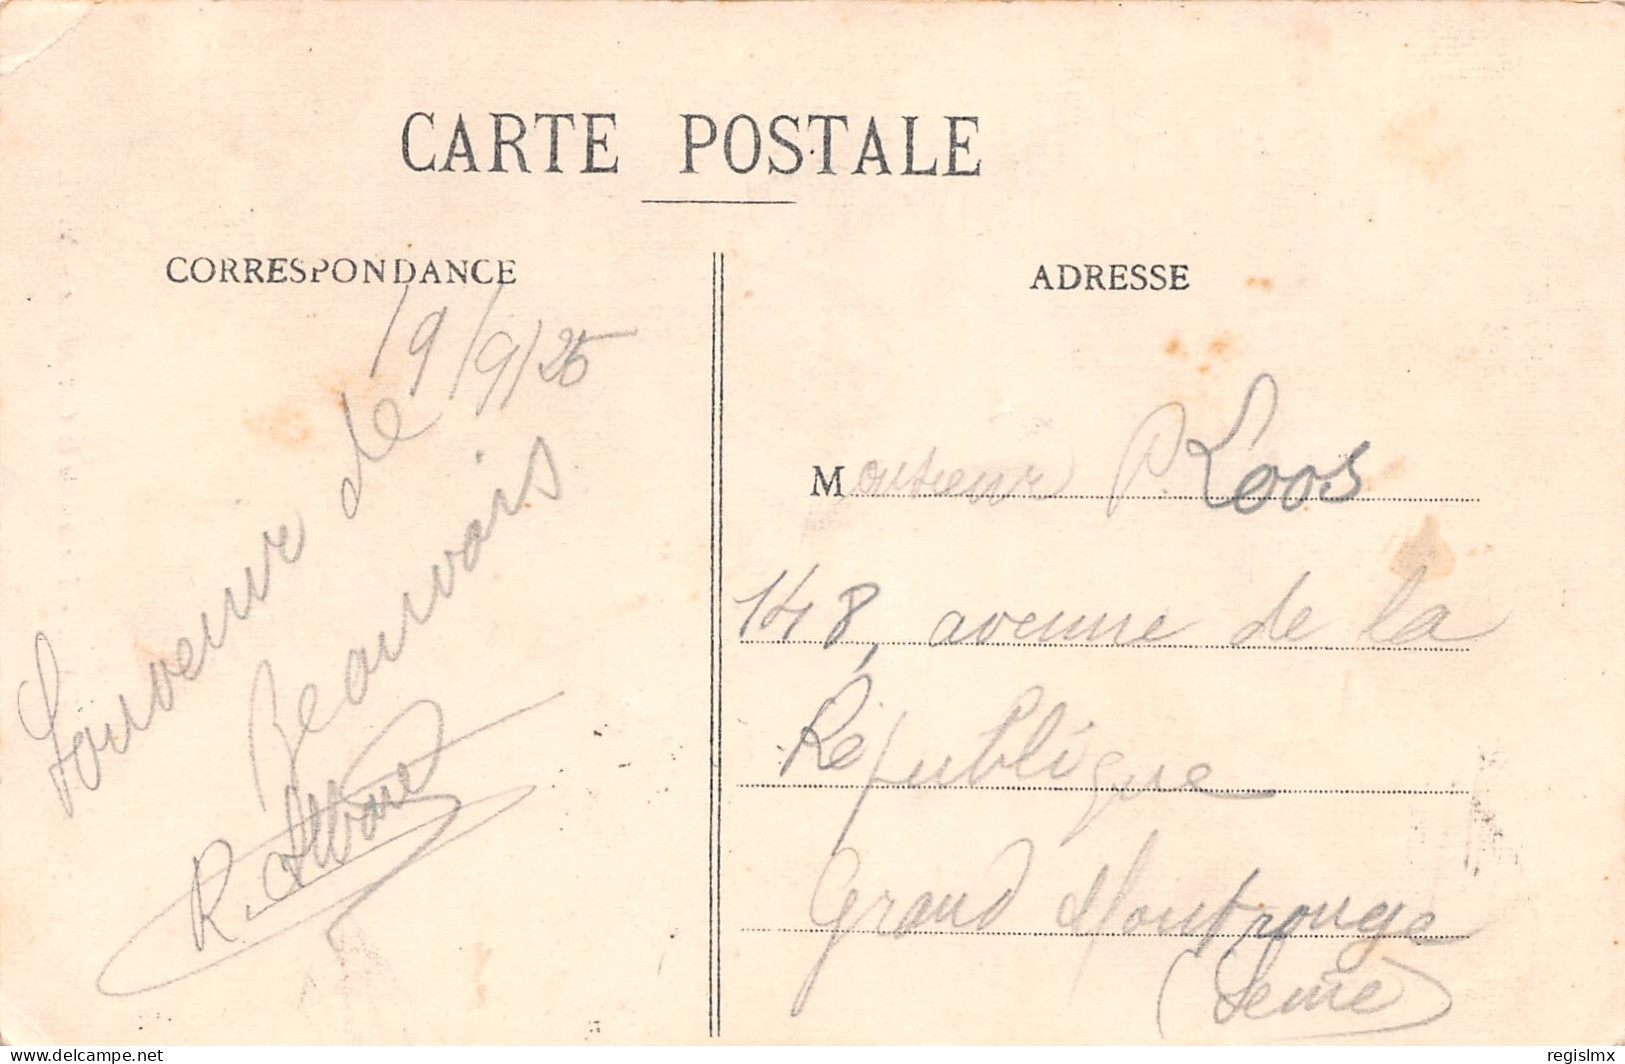 CARTE POSTALE
CORRESPONDANCE
19/9/25
Souvenir de
Beauvais
ADRESSE
Monsieur P. Loos
148, avenue de la
République
Grand Montrouge
(Seine)
delcampe.net
regislmx